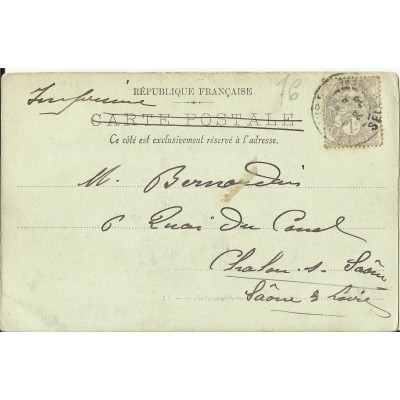 76
Imprimé
RÉPUBLIQUE FRANÇAISE
CARTE POSTALE
Ce côté est exclusivement réservé à l'adresse.
M. Bernardin
6 Quai du Canal
Chalon s. Saône
Saône & Loire